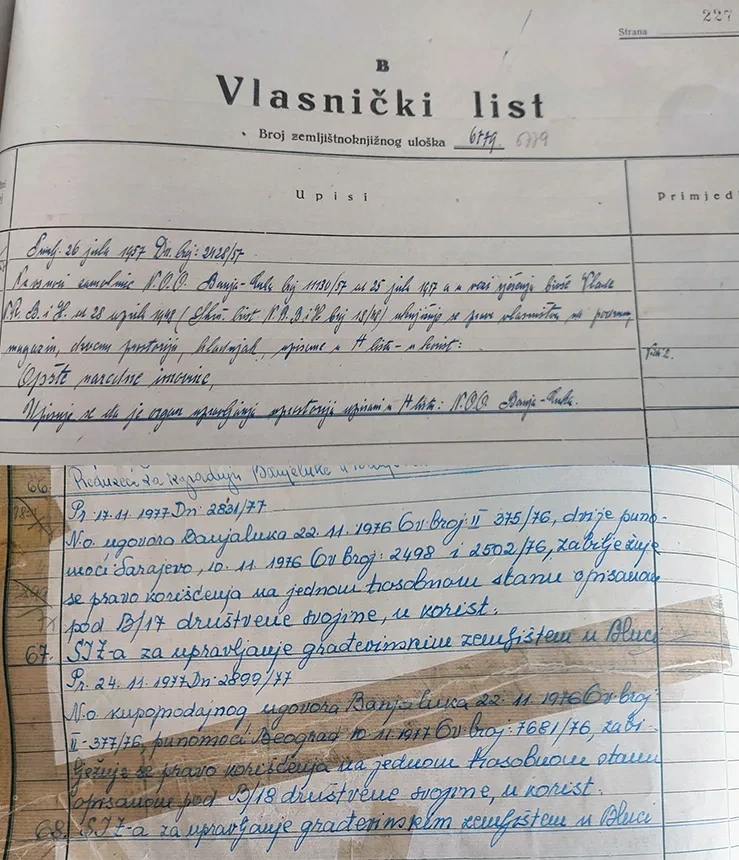 227
Strana
B
Vlasnički list
Broj zemljištnoknjižnog uloška 6779. 6779
Upisi
Primjed
26 jula 1957 Dn. broj: 2128/57
N.O.O. Banja-Luka broj 11130/57 od 25 jula 1957 a u vezi rješenja bivše Vlade
N.R. B.i H. od 28 aprila 1948 uknjižuje se pravo vlasništva na
magazin, drvena prostorija, hladnjak, upisane u A listu - u korist:
Opšte narodne imovine,
Upisuje se da je organ upravljanja upisani u A listu: N.O.O. Banja-Luka.
66. Preduzeća za izgradnju Banjeluke
Pr. 17. 11. 1977 Dn: 2831/77
No. ugovora Banjaluka 22. 11. 1976 Ov. broj: II 375/76, dvije puno-
moći Sarajevo, 10. 11. 1976 Ov broj: 2498 i 2502/76, zabilježuje
se pravo korišćenja na jednom trosobnom stanu opisanom
pod B/17 društvene svojine, u korist:
67. SIZ-a za upravljanje građevinskim zemljištem u Bluci
Pr. 24. 11. 1977 Dn: 2899/77
No kupoprodajnog ugovora Banjaluka 22. 11. 1976 Ov broj:
II-377/76, punomoći Beograd 10. 11. 1977 Ov broj: 7681/76, zabi-
lježuje se pravo korišćenja na jednom trosobnom stanu
opisanom pod B/18 društvene svojine, u korist:
68. SIZ-a za upravljanje građevinskim zemljištem u Bluci